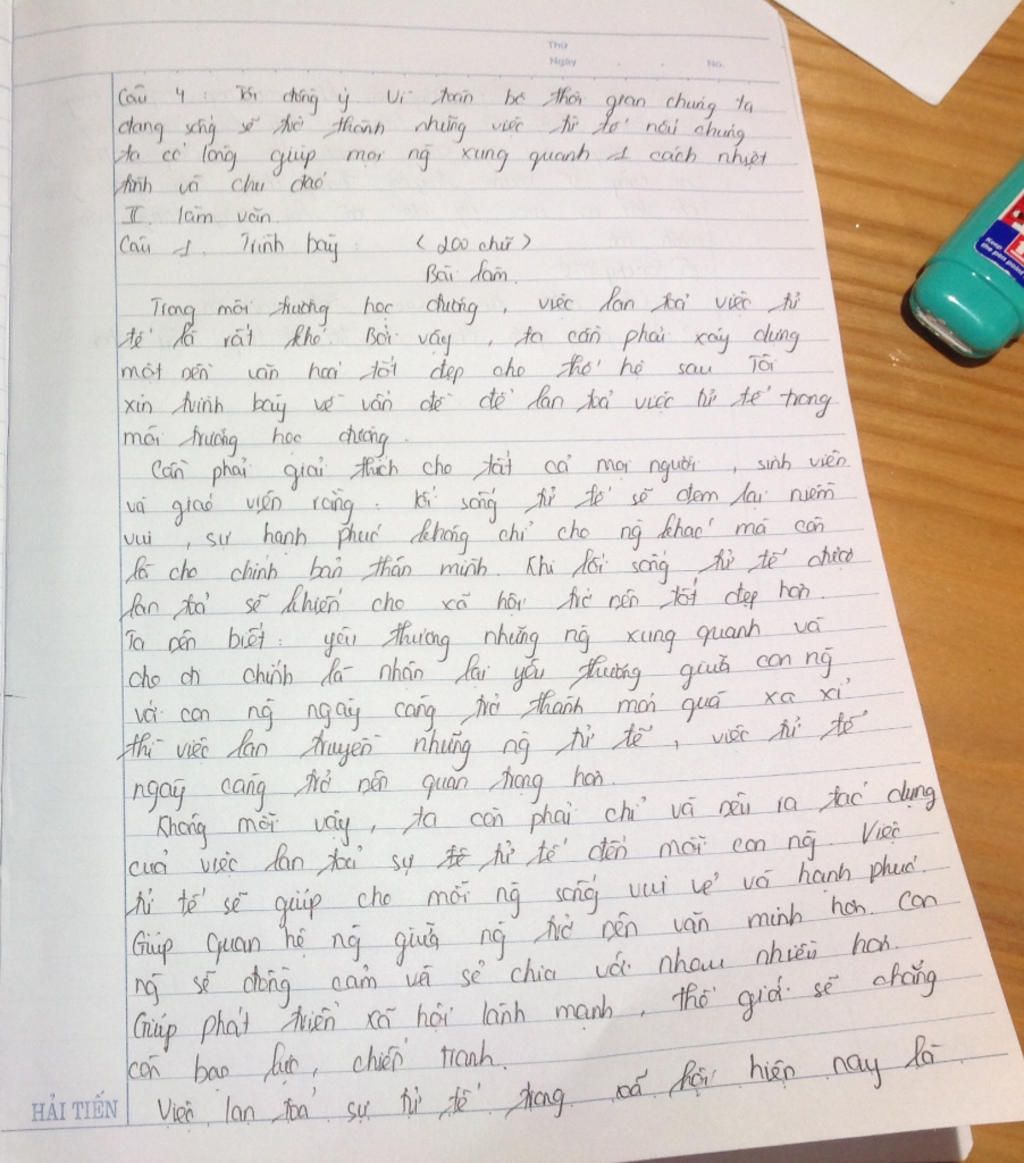 Thứ
Ngày . . No.
Câu 4 : Tôi đồng ý vì toàn bộ thời gian chúng ta
đang sống sẽ trở thành những việc tử tế nếu chúng
ta có lòng giúp mọi ng̃ xung quanh 1 cách nhiệt
tình và chu đáo
II. làm văn.
Câu 1. Trình bày : (200 chữ)
Bài làm.
Trong môi trường học đường, việc lan toả việc tử
tế là rất khó. Bởi vậy, ta cần phải xây dựng
một nền văn hoá tốt đẹp cho thế hệ sau. Tôi
xin trình bày về vấn đề để lan toả việc tử tế trong
môi trường học đường.
Cần phải giải thích cho tất cả mọi người, sinh viên
và giáo viên rằng : lối sống tử tế sẽ đem lại niềm
vui, sự hạnh phúc không chỉ cho ng̃ khác mà còn
là cho chính bản thân mình. Khi lối sống tử tế được
lan toả sẽ khiến cho xã hội trở nên tốt đẹp hơn.
Ta nên biết : yêu thương những ng̃ xung quanh và
cho đi chính là nhận lại yêu thương giữa con ng̃
với con ng̃ ngày càng trở thành món quà xa xỉ
thì việc lan truyền những ng̃ tử tế, việc tử tế
ngày càng trở nên quan trọng hơn.
Không mỗi vậy, ta còn phải chỉ và nêu ra tác dụng
của việc lan toả sự tử tế đến mỗi con ng̃. Việc
tử tế sẽ giúp cho mỗi ng̃ sống vui vẻ và hạnh phúc.
Giúp quan hệ ng̃ giữa ng̃ trở nên văn minh hơn. Con
ng̃ sẽ đồng cảm và sẻ chia với nhau nhiều hơn.
Giúp phát triển xã hội lành mạnh, thế giới sẽ chẳng
còn bạo lực, chiến tranh.
Việc lan toả sự tử tế trong xã hội hiện nay là
HẢI TIẾN